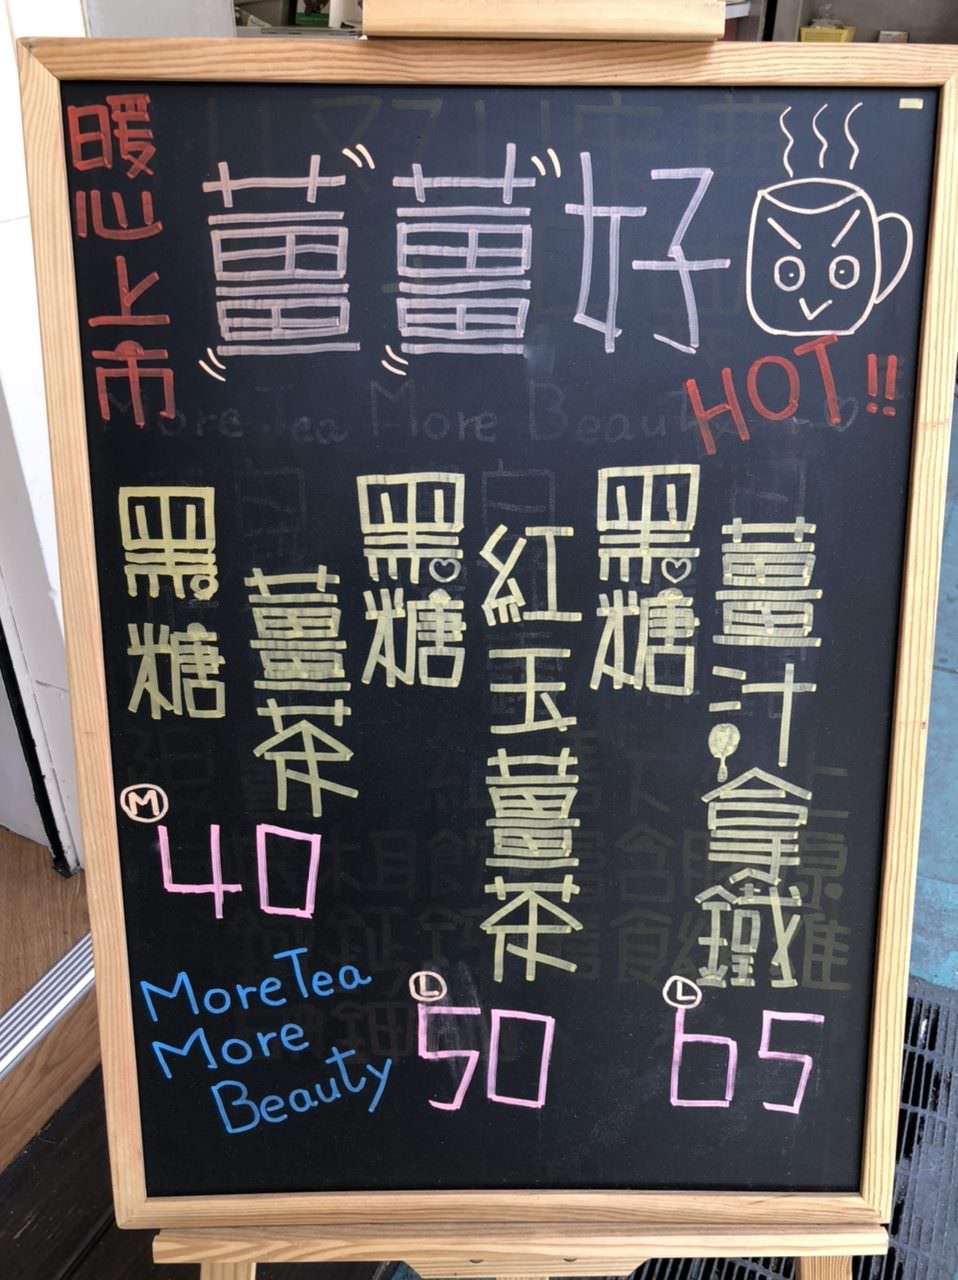 暖心上市
薑薑好
HOT!!
黑糖
薑茶
M
40
黑糖
紅玉薑茶
L
50
黑糖
薑汁拿鐵
L
65
MoreTea
More
Beauty
More Tea More Beauty